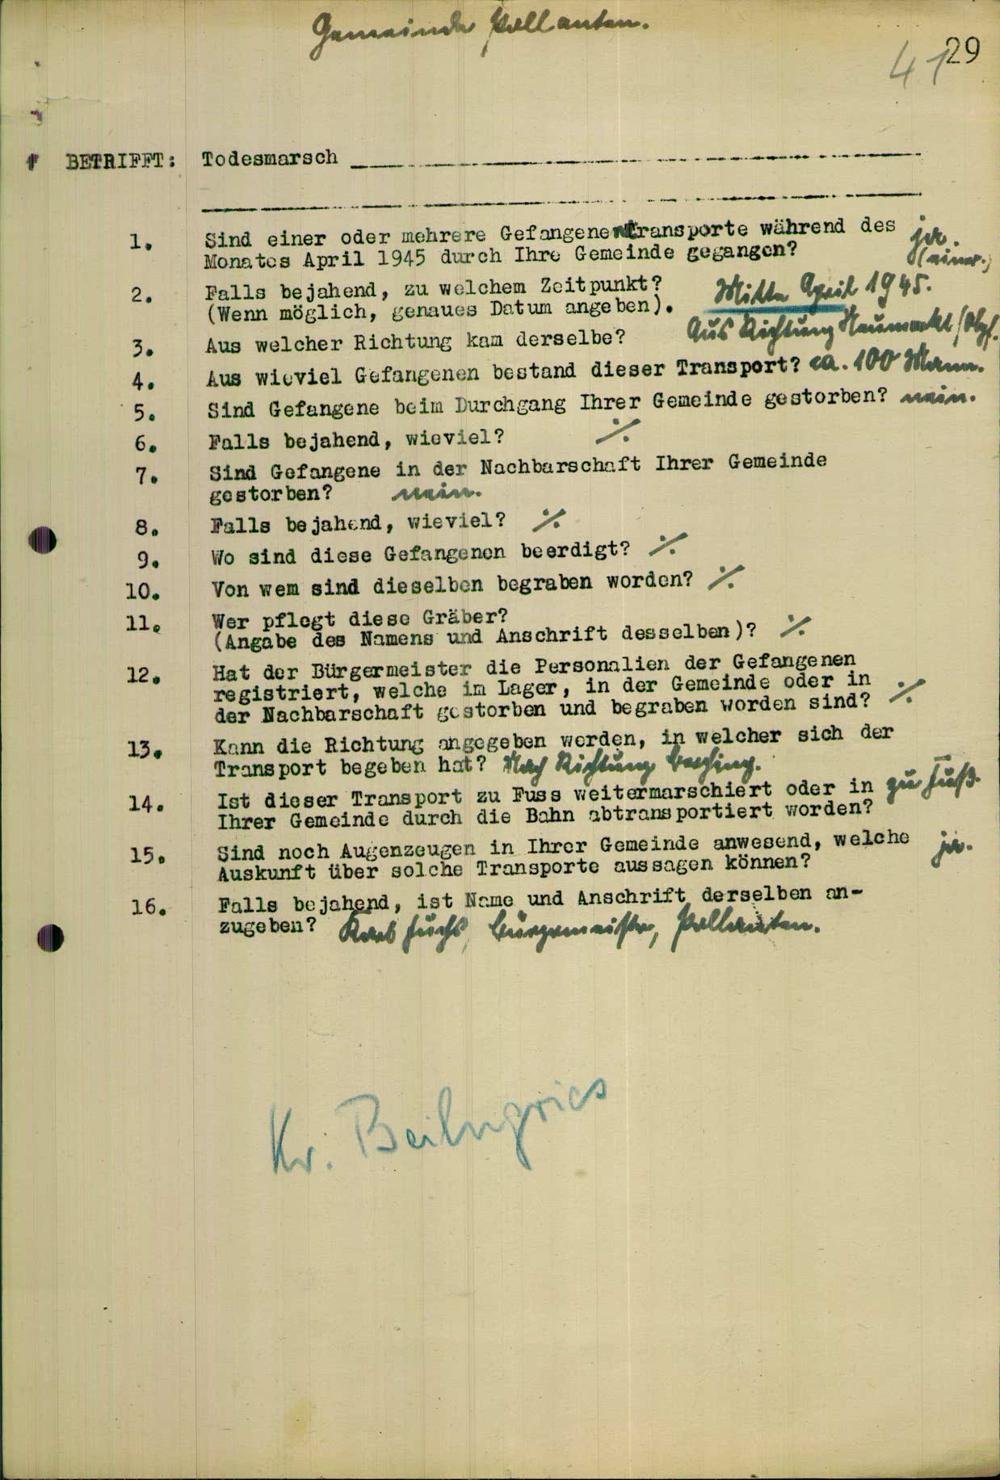 Gemeinde Pollanten.
41 29
BETRIFFT: Todesmarsch
1. Sind einer oder mehrere Gefangenentransporte während des ja.
Monates April 1945 durch Ihre Gemeinde gegangen? (einer.)
2. Falls bejahend, zu welchem Zeitpunkt? Mitte April 1945.
(Wenn möglich, genaues Datum angeben).
3. Aus welcher Richtung kam derselbe? Aus Richtung Neumarkt/Opf.
4. Aus wieviel Gefangenen bestand dieser Transport? ca. 100 Mann.
5. Sind Gefangene beim Durchgang Ihrer Gemeinde gestorben? nein.
6. Falls bejahend, wieviel? ./.
7. Sind Gefangene in der Nachbarschaft Ihrer Gemeinde
gestorben? nein.
8. Falls bejahend, wieviel? ./.
9. Wo sind diese Gefangenen beerdigt? ./.
10. Von wem sind dieselben begraben worden? ./.
11. Wer pflegt diese Gräber?
(Angabe des Namens und Anschrift desselben)? ./.
12. Hat der Bürgermeister die Personalien der Gefangenen
registriert, welche im Lager, in der Gemeinde oder in
der Nachbarschaft gestorben und begraben worden sind? ./.
13. Kann die Richtung angegeben werden, in welcher sich der
Transport begeben hat? Nach Richtung Berching.
14. Ist dieser Transport zu Fuss weitermarschiert oder in zu Fuß.
Ihrer Gemeinde durch die Bahn abtransportiert worden?
15. Sind noch Augenzeugen in Ihrer Gemeinde anwesend, welche ja.
Auskunft über solche Transporte aussagen können?
16. Falls bejahend, ist Name und Anschrift derselben an-
zugeben? Karl Fuchs, Bürgermeister, Pollanten.
Kr. Beilngries